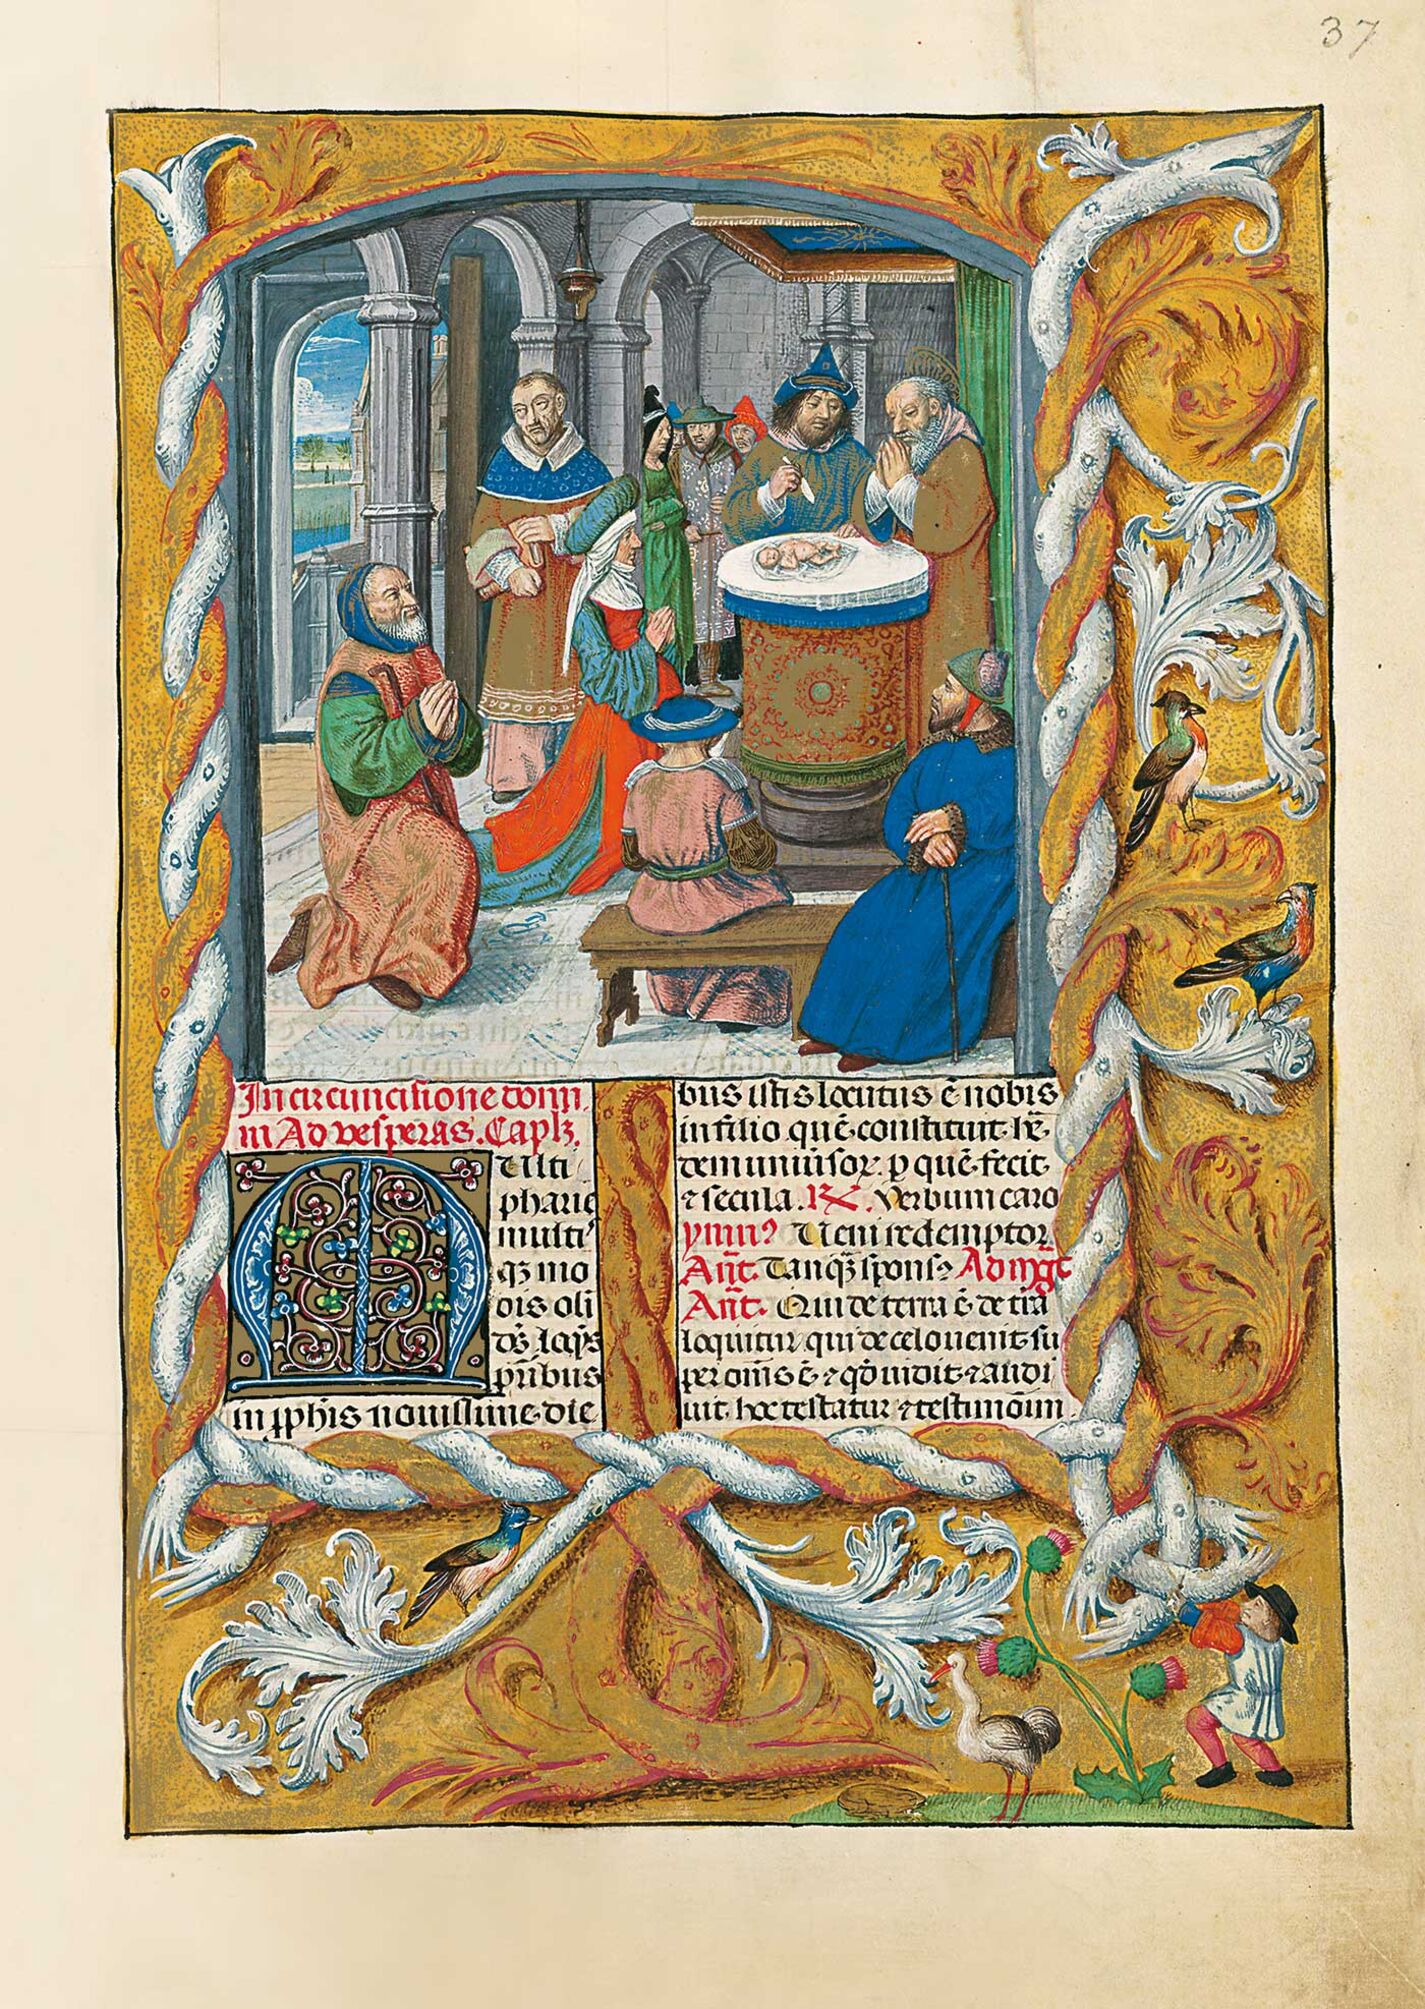 37
In circuncisione domi
ni Ad vesperas. Caplꝫ.
Multi
pharie
multi᾽
qꝫ mo
dis oli
dꝰ. loq̄ꝰs
pr̄ibus
in ꝓph̄is nouissime. die
bus istis locutus ē nobis
in filio quē. constituit. he᷑
dem uniuūsoꝝ. ꝑ quē. fecit.
⁊ secula. RX. Verbum caro
ymnꝰ Ueni redemptor
An̄t. Tanqꝫ sponsꝰ Ad mg̅t
An̄t. Qui de terra ē. de tr̄a
loquitur. qui de celo uenit. su
per om̄s ē. ⁊ qd̄ uidit. ⁊ audi
uit. hoc testatur. ⁊ testimōium